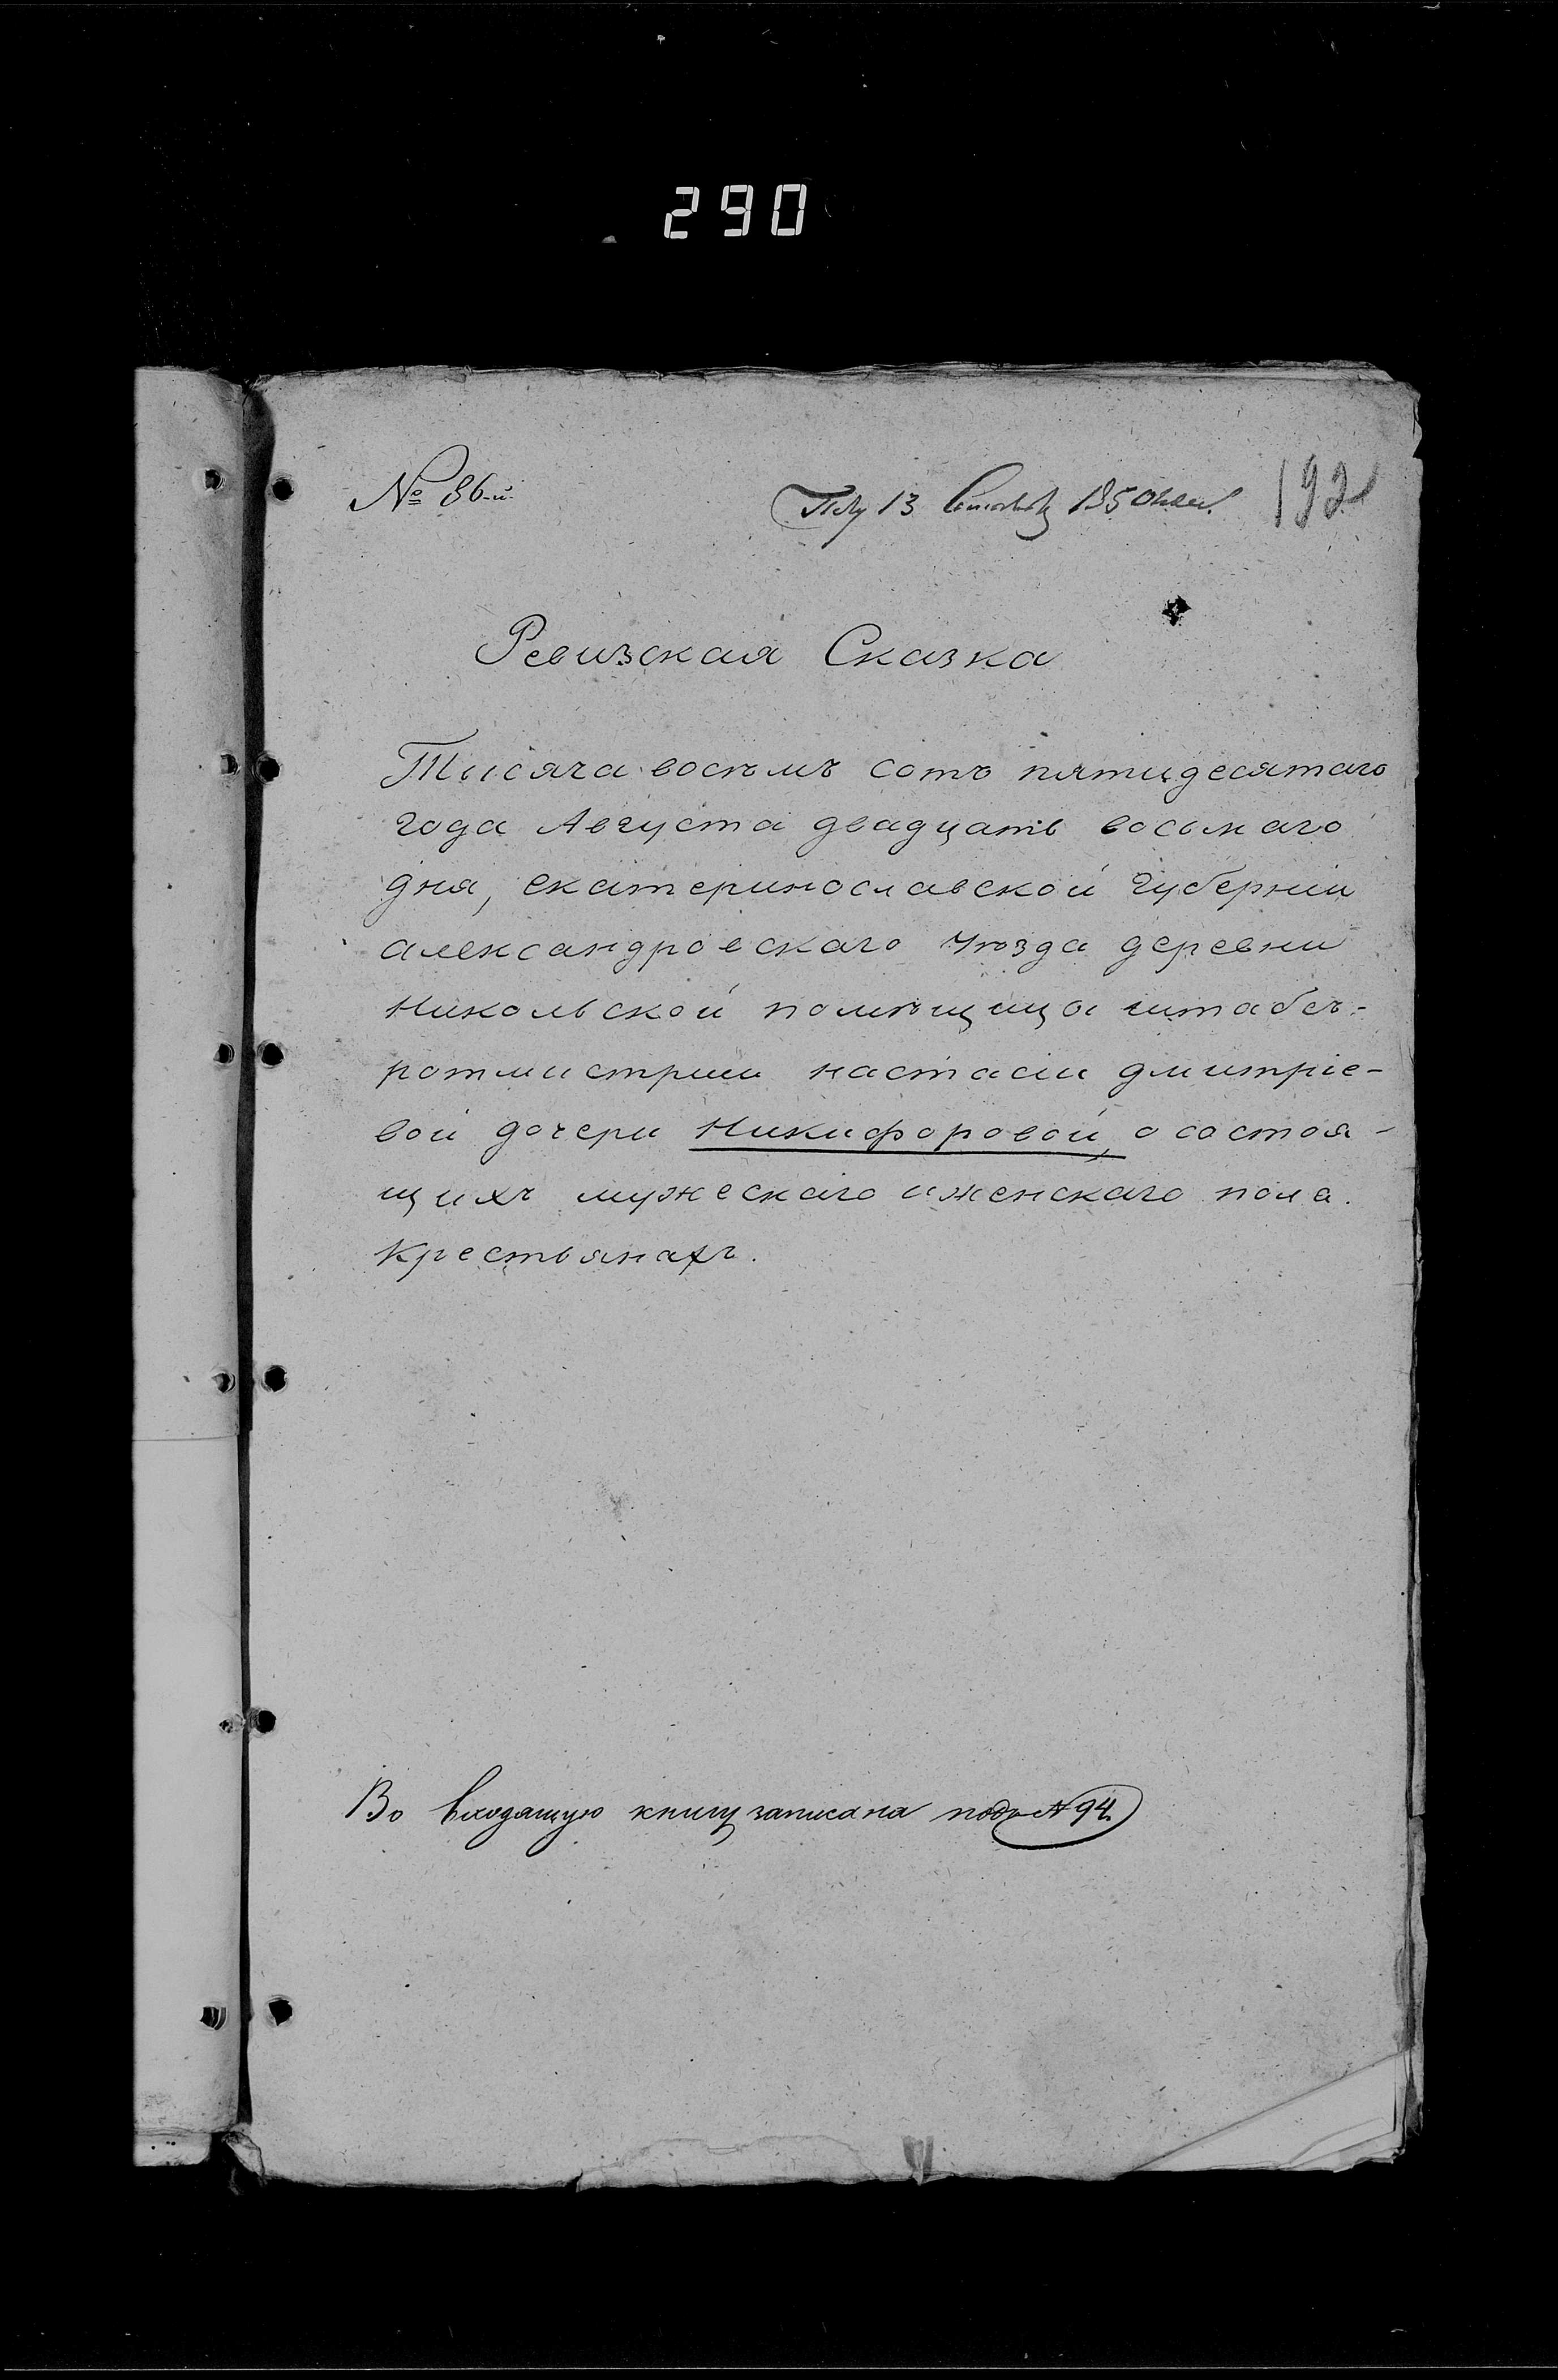 290
№ 86-й.
13 1850 192
Ревизская Сказка
Тысяча восѣмъ сотъ пятидесятаго
года Августа двадцать восьмаго
дня, екатеринославской губерніи
александровскаго уѣзда деревни
Никольской помѣщицы штабсъ-
ротмистрши настасіи дмитріе-
вой дочери Никифоровой, о состоя-
щихъ мужескаго иженскаго пола.
Крестьянахъ.
Во входящую книгу записана подъ N 94.